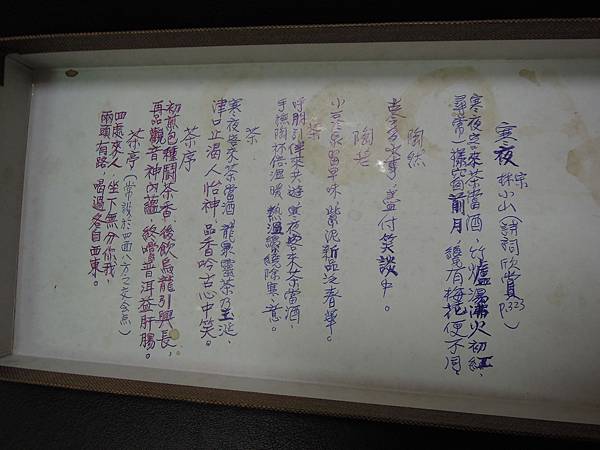 寒夜 宋 林小山 (詩詞欣賞 P.323)
寒夜客來茶當酒,竹爐湯沸火初紅,
尋常一樣窗前月,纔有梅花便不同。
陶然
古今多少事,盡付笑談中。
陶菴
小壺泉留早味,紫泥新品泛春華。
茶
呼朋引伴來共遊,寒夜客來茶當酒,
手捧陶杯倍溫暖,熱溫讓緩除寒意。
茶
寒夜客來茶當酒,龍泉雲茶乃玉涎,
津口止渴人怡神,品香吟古心中笑。
茶序
初煎包種鬪茶香,後飲烏龍引興長,
再品觀音神內蘊,終嚐普洱益肝腸。
茶亭 (常設於四面八方之交會点)
四處來人,坐無分你我,
兩頭有路,喝過各自西東。